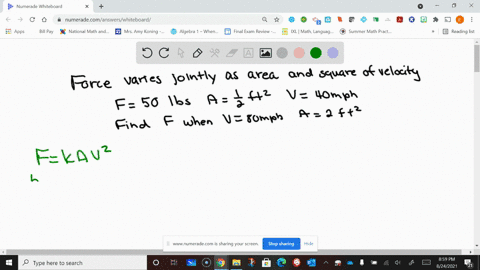 Numerade Whiteboard
numerade.com/answers/whiteboard/
Apps
Bill Pay
National Math and...
Mrs. Amy Koning -...
Algebra 1 - Whem...
Final Exam Review -...
IXL | Math, Languag...
Summer Math Pract...
Reading list
Force varies jointly as area and square of velocity
F=50 lbs A=1/2 ft² V=40mph
Find F when V=80mph A=2 ft²
F=kAV²
www.numerade.com is sharing your screen.
Stop sharing
Hide
Type here to search
8:59 PM
6/24/2021